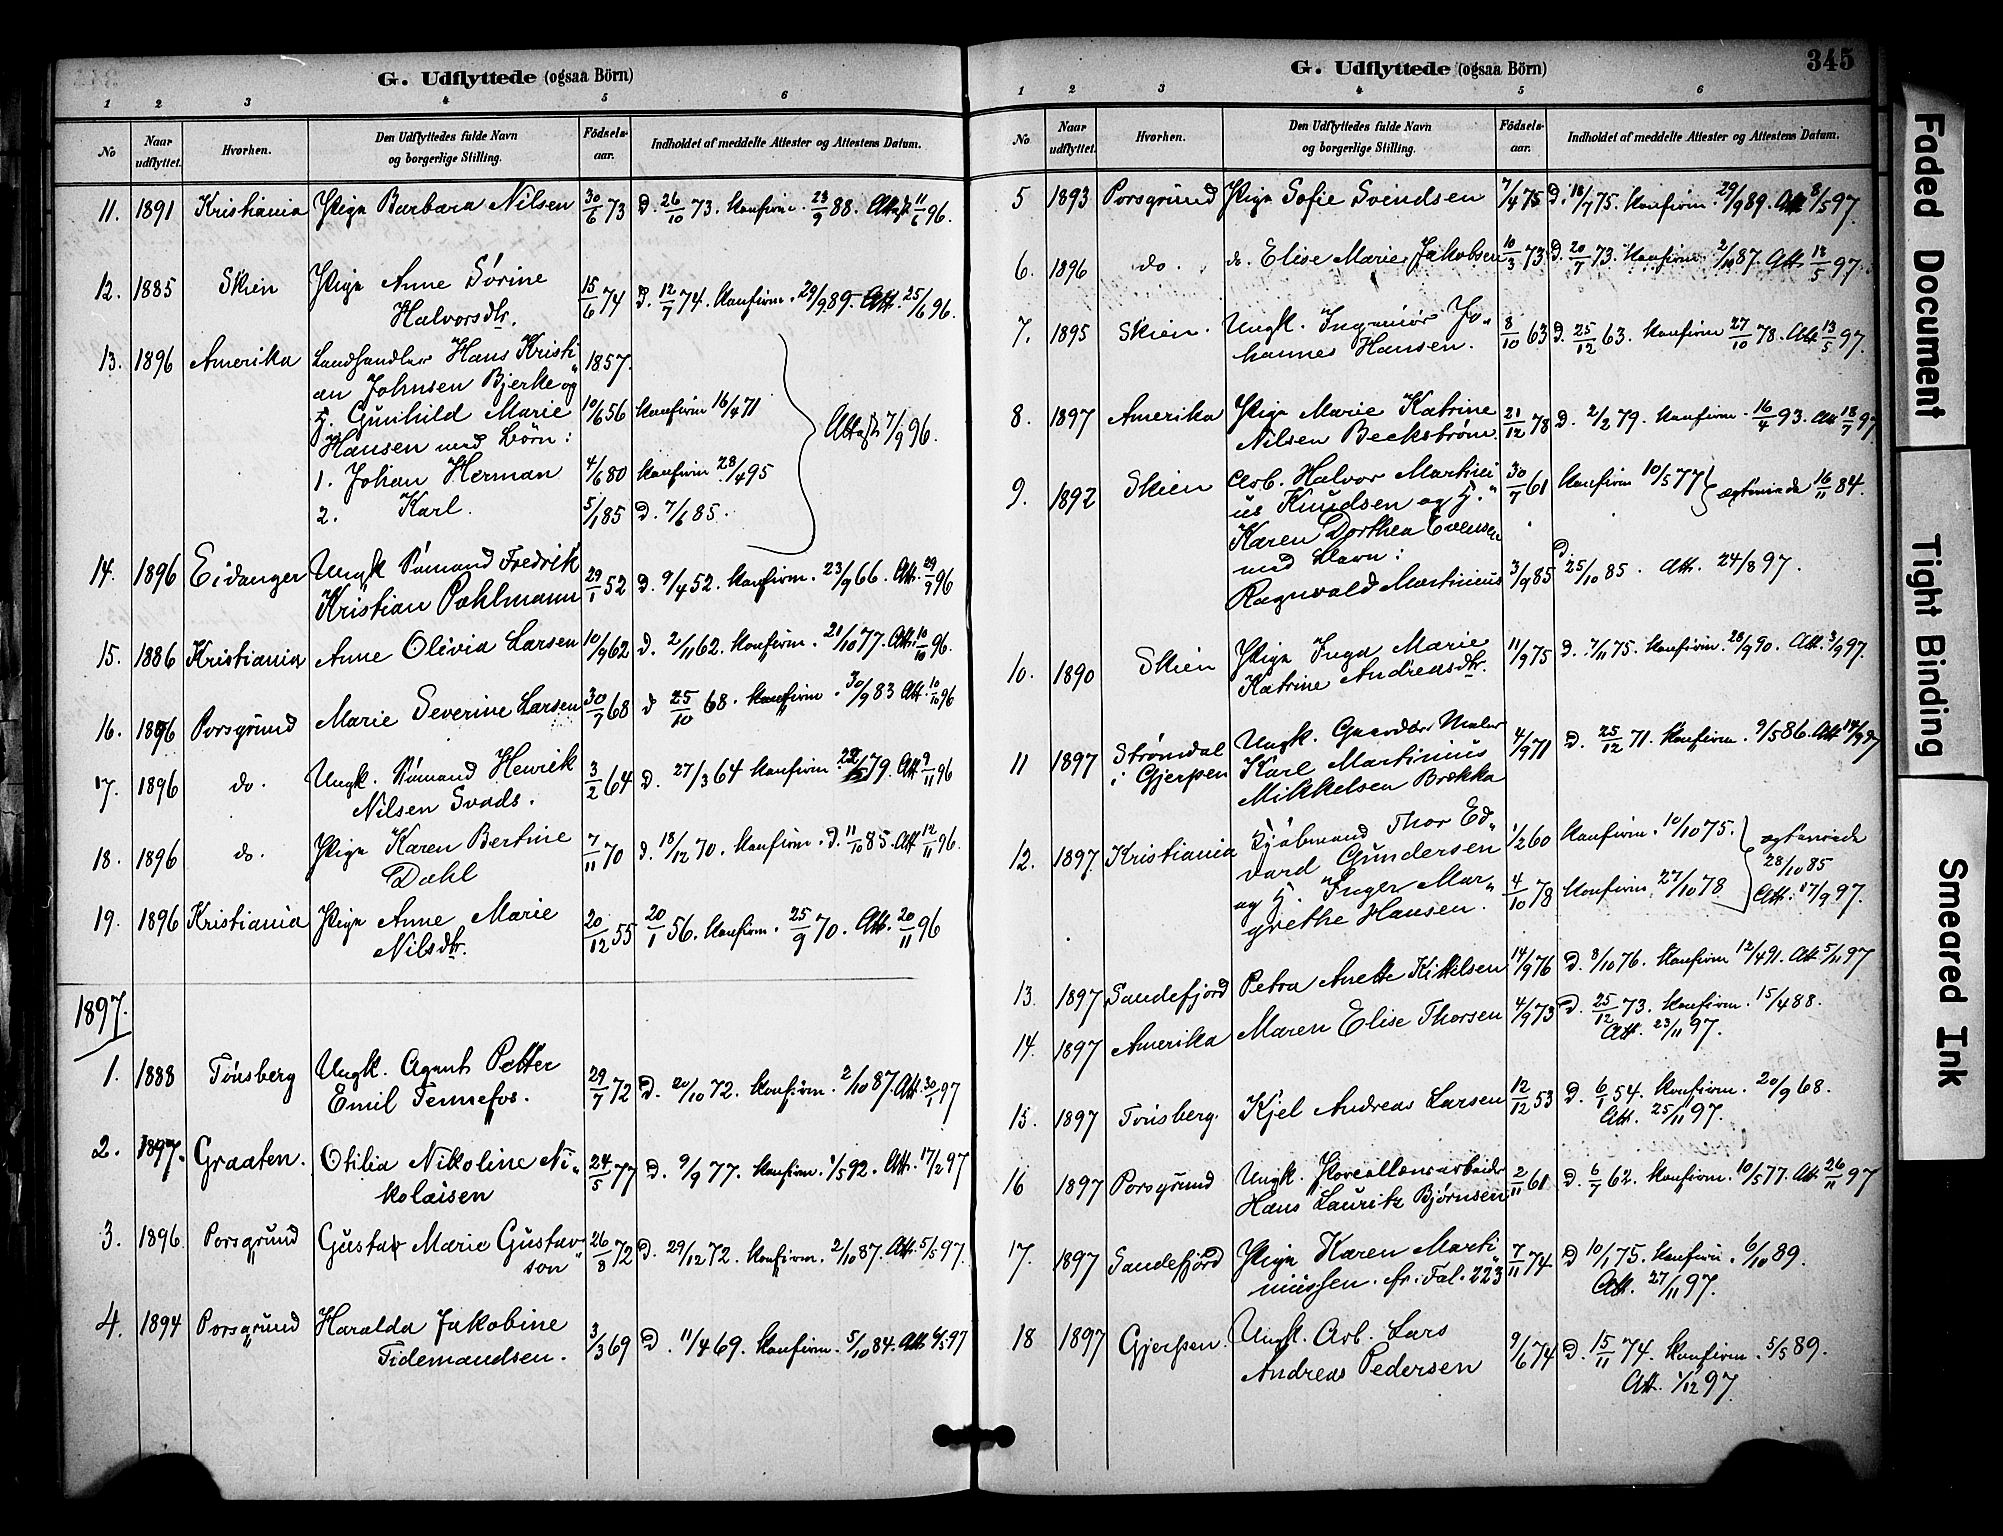 G. Udflyttede (ogsaa Börn)
1 2 3 4 5 6
No Naar udflyttet. Hvorhen. Den Udflyttedes fulde Navn og borgerlige Stilling. Födsels-aar. Indholdet af meddelte Attester og Attestens Datum.
11. 1891 Kristiania Pige Barbara Nilsen 30/6 73 D. 26/10 73. Konfirm. 23/9 88. Attest 11/6 96.
12. 1885 Skien Pige Anne Sørine
Halvorsdtr. 15/6 74 D. 12/7 74. Konfirm. 29/9 89. Att. 25/6 96.
13. 1896 Amerika Landhandler Hans Kristi
an Johnsen Bjerke og 1857.
H. Gunhild Marie 10/6 56 Konfirm 16/4 71
Hansen med Børn: Attest 7/9 96.
1. Johan Herman 4/6 80 Konfirm 28/4 95
2. Karl. 5/1 85 D. 7/6 85.
14. 1896 Eidanger Ungk Sømand Fredrik
Kristian Pahlmann 29/1 52 D. 9/4 52. Konfirm. 23/9 66. Att. 29/9 96
15. 1886 Kristiania Anne Olivia Larsen 10/9 62 D. 2/11 62. Konfirm. 21/10 77. Att. 10/10 96.
16. 1896 Porsgrund Marie Severine Larsen 30/7 68 d 25/10 68. Konfirm. 30/9 83 Att. 10/10 96
17. 1896 do. Ungk. Sømand Henrik
Nilsen Svads. 3/2 64 D. 27/3 64 Konfirm 79. Att 9/11 96
18. 1896 do. Pige Karen Bertine
Dahl 7/11 70 D. 18/12 70. Konfirm. D. 11/10 85. Att 12/11 96.
19. 1896 Kristiania Pige Anne Marie
Nilsdtr. 20/12 55 20/1 56. Konfirm. 25/9 70. Att. 20/11 96
1897.
1. 1888 Tønsberg Ungk. Agent Petter
Emil Tennefos. 29/7 72 D. 20/10 72. Konfirm. 2/10 87. Att. 30/1 97
2. 1897. Graaten. Otilia Nikoline Ni-
kolaisen 24/5 77 D. 9/9 77. Konfirm. 1/5 92. Att. 17/2 97
3. 1896 Porsgrund Gustav Marie Gustav
son 26/8 72 D. 29/12 72. Konfirm. 2/10 87. Att. 5/5 97.
4. 1894 Porsgrund Haralda Jakobine
Tidemandsen. 3/3 69 D. 11/4 69. Konfirm. 5/10 84. Att. 6/5 97
G. Udflyttede (ogsaa Börn) 345
1 2 3 4 5 6
No Naar udflyttet. Hvorhen. Den Udflyttedes fulde Navn og borgerlige Stilling. Födsels-aar. Indholdet af meddelte Attester og Attestens Datum.
5 1893 Porsgrund Pige Sofie Svindsen 7/4 75 D. 18/7 75. Konfirm. 29/9 89. Att 8/5 97.
6. 1896 do. do. Elise Marie Jakobsen 10/3 73 D. 20/7 73. Konfirm. 87. Att 12/5 97.
7. 1895 Skien. Ungk. Ingeniør Jo-
hannes Hansen. 8/10 63 D. 25/12 63. Konfirm 27/10 78. Att 13/5 97.
8. 1897 Amerika Pige Marie Katrine
Nilsen Beckstrøm. 21/12 78 D. 2/2 79. Konfirm. 16/4 93. Att 18/7 97
9. 1892 Skien Arb. Halvor Martini
us Knudsen og H. 30/7 61 Konfirm 10/5 77 ægteviede 16/11 84.
Karen Dorthea Evensen
med Barn:
Ragnvald Martinius 3/9 85 D. 25/10 85. Att. 24/8 97.
10. 1890 Skien Pige Inga Marie
Katrine Andreasdtr. 11/9 75 D. 7/11 75. Konfirm. 28/9 90. Att. 3/9 97.
11 1897 Strømdal
i Gjerpen Ungk. Gaardbr. Maler
Karl Martinius
Mikkelsen Brekka 4/9 71 D. 25/12 71. Konfirm. 9/5 86. Att 14/9 97
12. 1897. Kristiania Kjøbmand Thor Ed-
vard Gundersen 1/2 60 Konfirm. 10/10 75. ægteviede 28/10 85
og H. Inger Mar-
grethe Hansen. 4/10 78 Konfirm. 27/10 78 Att. 17/9 97.
13. 1897 Sandefjord Petra Anette Kittelsen 14/9 76 D. 8/10 76. Konfirm 12/4 91. Att 5/11 97
14. 1897 Amerika Maren Elise Thorsen 4/9 73 D. 25/12 73. Konfirm. 15/4 88.
Att. 23/11 97.
15. 1897 Tønsberg. Kjel Andreas Larsen 12/12 53 D. 6/1 54. Konfirm. 20/9 68.
Att. 25/11 97.
16 1897 Porsgrund Ungk. Porcellænsarbeider
Hans Lauritz Bjørnsen 2/11 61 D. 6/7 62. Konfirm. 10/5 77. Att. 26/11 97
17. 1897 Sandefjord Pige Karen Marti
niussen. fr. Fol. 223 7/11 74 D 10/1 75. Konfirm. 6/10 89.
Att. 27/11 97.
18 1897 Gjerpen. Ungk. Arb. Lars
Andreas Pedersen 9/6 74 D. 15/11 74. Konfirm. 5/5 89.
Att. 1/12 97.
Faded Document
Tight Binding
Smeared Ink